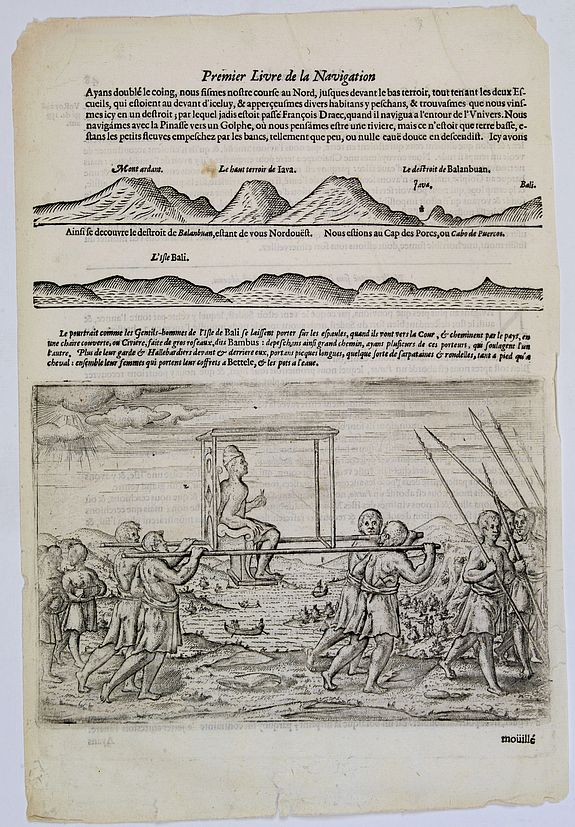 Premier Livre de la Navigation
Ayans doublé le coing, nous fismes nostre course au Nord, jusques devant le bas terroir, tout tenant les deux Es-
cueils, qui estoient au devant d'iceluy, & apperçeusmes divers habitans y peschans, & trouvasmes que nous vins-
mes icy en un destroit; par lequel jadis estoit passé François Draec, quand il navigua a l'entour de l'Vnivers. Nous
navigâmes avec la Pinasse vers un Golphe, où nous pensâmes estre une riviere, mais ce n'estoit que terre basse, e-
stans les petits fleuves empeschez par les bancs, tellement que peu, ou nulle cauë douce en descendist. Icy avons
Mont ardant. Le haut terroir de Iava. Le destroit de Balanbuan.
Java. Bali.
Ainsi se decouvre le destroit de Balanbuan, estant de vous Nordouëst. Nous estions au Cap des Porcs, ou Cabo de Puercos.
L'isle Bali.
Le pourtrait comme les Gentils-hommes de l'Isle de Bali se laissent porter sur les espaules, quand ils vont vers la Cour, & cheminent par le pays, en
une chaire couverte, ou Civiere, faite de gros roseaux, dits Bambus: depeschans ainsi grand chemin, ayans plusieurs de ces porteurs, qui soulagent l'un
l'autre. Plus de leur garde & Hallebardiers devant & derriere eux, portans picques longues, quelque sorte de sarpataines & rondelles, tant a pied qu'a
cheval: ensemble leur femmes qui portent leur coffrets a Bettele, & les pots a l'eaue.
moüillé